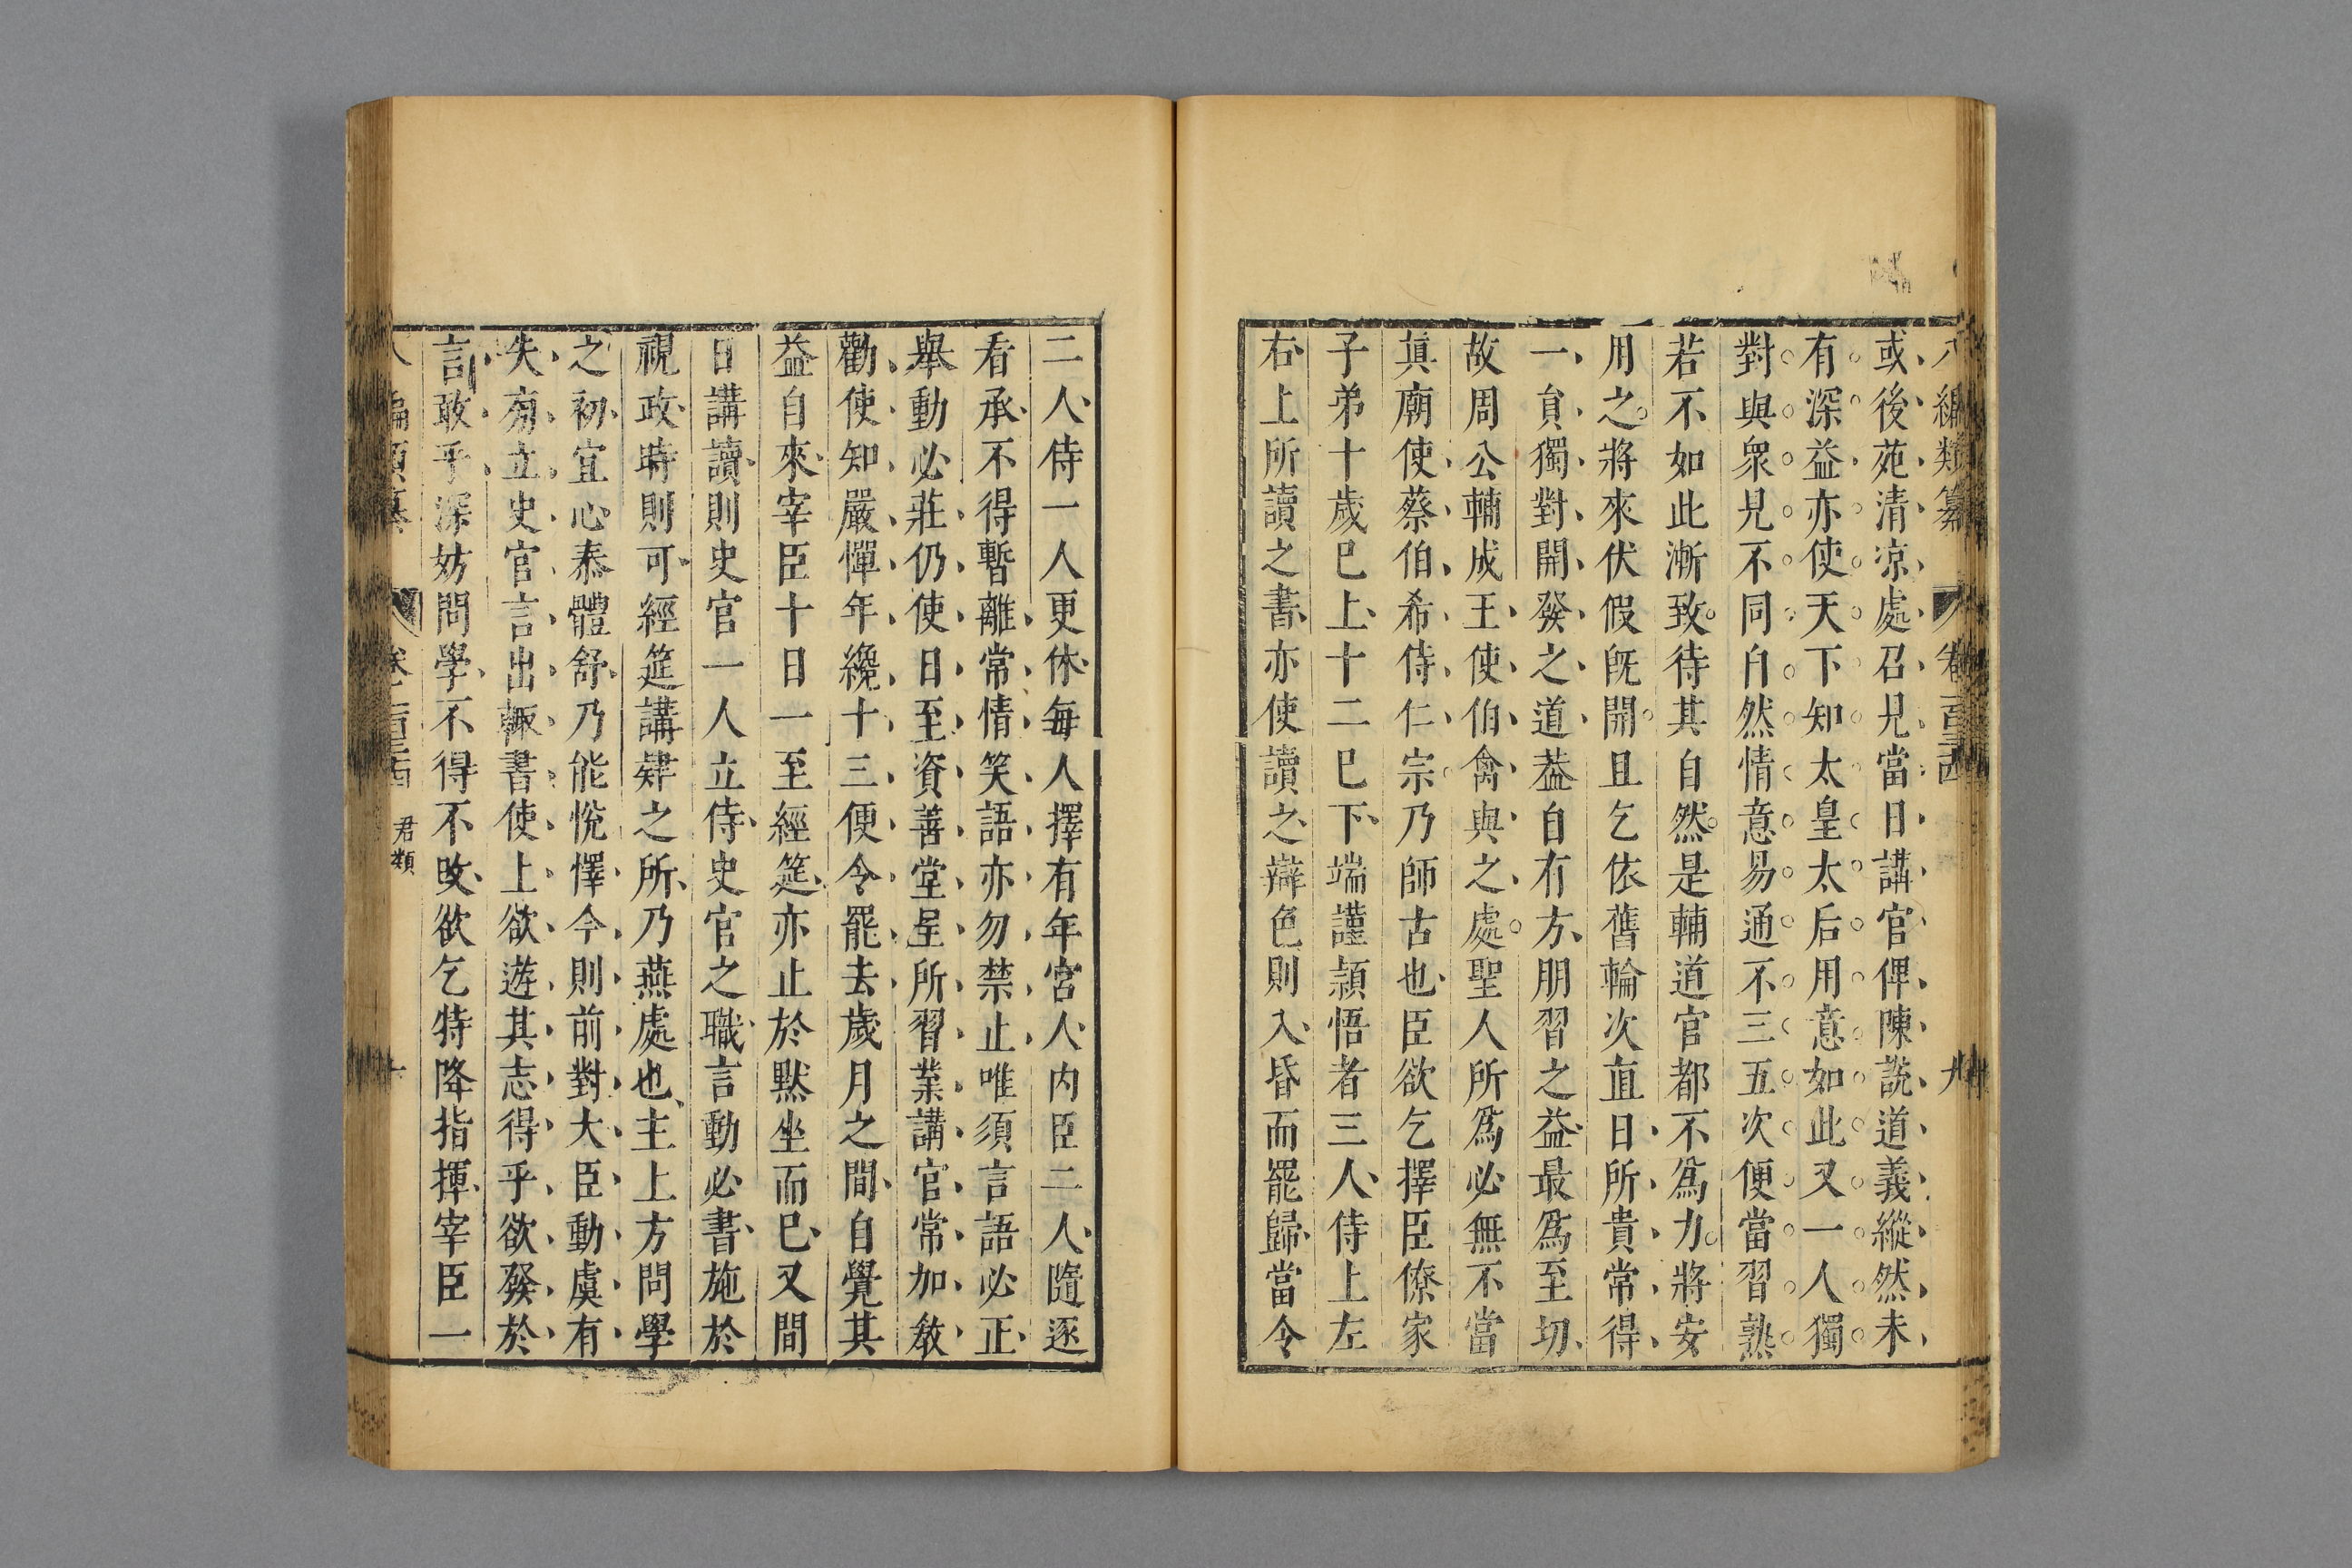 八編類纂 卷一百五十四 九
或後苑清凉處召見當日講官俾陳説道義縱然未
有深益亦使天下知太皇太后用意如此又一人獨
對與衆見不同自然情意易通不三五次便當習熟
若不如此漸致待其自然是輔道官都不爲力將安
用之將來伏假旣開且乞依舊輪次直日所貴常得
一員獨對開發之道葢自有方朋習之益最爲至切
故周公輔成王使伯禽與之處聖人所爲必無不當
眞廟使蔡伯希侍仁宗乃師古也臣欲乞擇臣僚家
子弟十歲巳上十二巳下端謹頴悟者三人侍上左
右上所讀之書亦使讀之辯色則入昏而罷歸當令
二人侍一人更休每人擇有年宮人内臣二人隨逐
看承不得暫離常情笑語亦勿禁止唯須言語必正
舉動必莊仍使日至資善堂呈所習業講官常加敎
勸使知嚴憚年纔十三便令罷去歲月之間自覺其
益自來宰臣十日一至經筵亦止於默坐而巳又間
日講讀則史官一人立侍史官之職言動必書施於
視政時則可經筵講肄之所乃燕處也主上方問學
之初宜心泰體舒乃能悅懌今則前對大臣動虞有
失旁立史官言出輒書使上欲遊其志得乎欲發於
言敢乎深妨問學不得不改欲乞特降指揮宰臣一
編類纂 卷一百五十四 君類 十